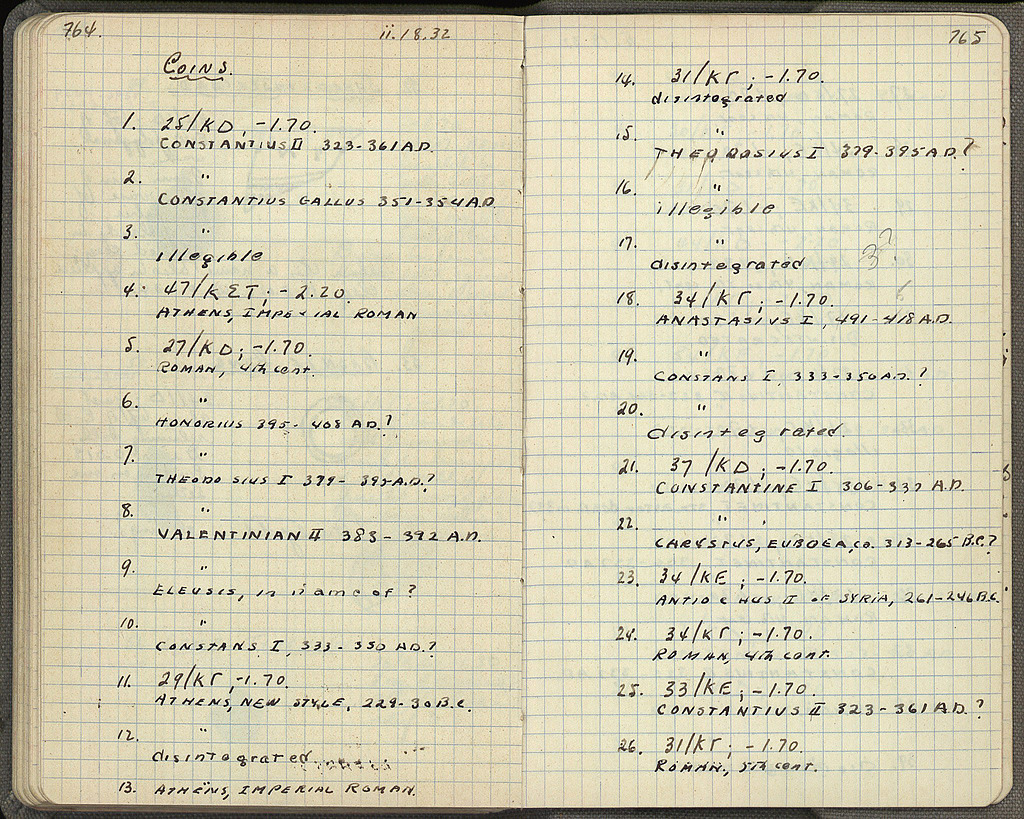 764.
ii.18.32
COINS.
1. 25/ΚD; -1.70.
CONSTANTIUS II 323-361 A.D.
2. "
CONSTANTIUS GALLUS 351-354 A.D.
3. "
illegible
4. 47/ΚΣΤ; -2.20.
ATHENS, IMPERIAL ROMAN
5. 27/ΚD; -1.70.
ROMAN, 4th cent.
6. "
HONORIUS 395-408 AD.?
7. "
THEODOSIUS I 379-395 A.D.?
8. "
VALENTINIAN II 383-392 A.D.
9. "
ELEUSIS, in name of?
10. "
CONSTANS I, 333-350 AD.?
11. 29/ΚΓ; -1.70.
ATHENS, NEW STYLE, 229-30 B.C.
12. "
disintegrated
13. ATHENS, IMPERIAL ROMAN.
765
14. 31/ΚΓ; -1.70.
disintegrated
15. "
THEODOSIUS I 379-395 A.D.?
16. "
illegible
17. "
disintegrated 3?
18. 34/ΚΓ; -1.70.
ANASTASIUS I, 491-418 A.D.
19. "
CONSTANS I, 333-350 A.D.?
20. "
disintegrated.
21. 37/ΚD; -1.70.
CONSTANTINE I 306-337 A.D.
22. "
CARYSTUS, EUBOEA, ca. 313-265 B.C.?
23. 34/ΚΕ; -1.70.
ANTIOCHUS II OF SYRIA, 261-246 B.C.
24. 34/ΚΓ; -1.70.
ROMAN, 4th cent.
25. 33/ΚΕ; -1.70.
CONSTANTIUS II 323-361 A.D.?
26. 31/ΚΓ; -1.70.
ROMAN, 5th cent.